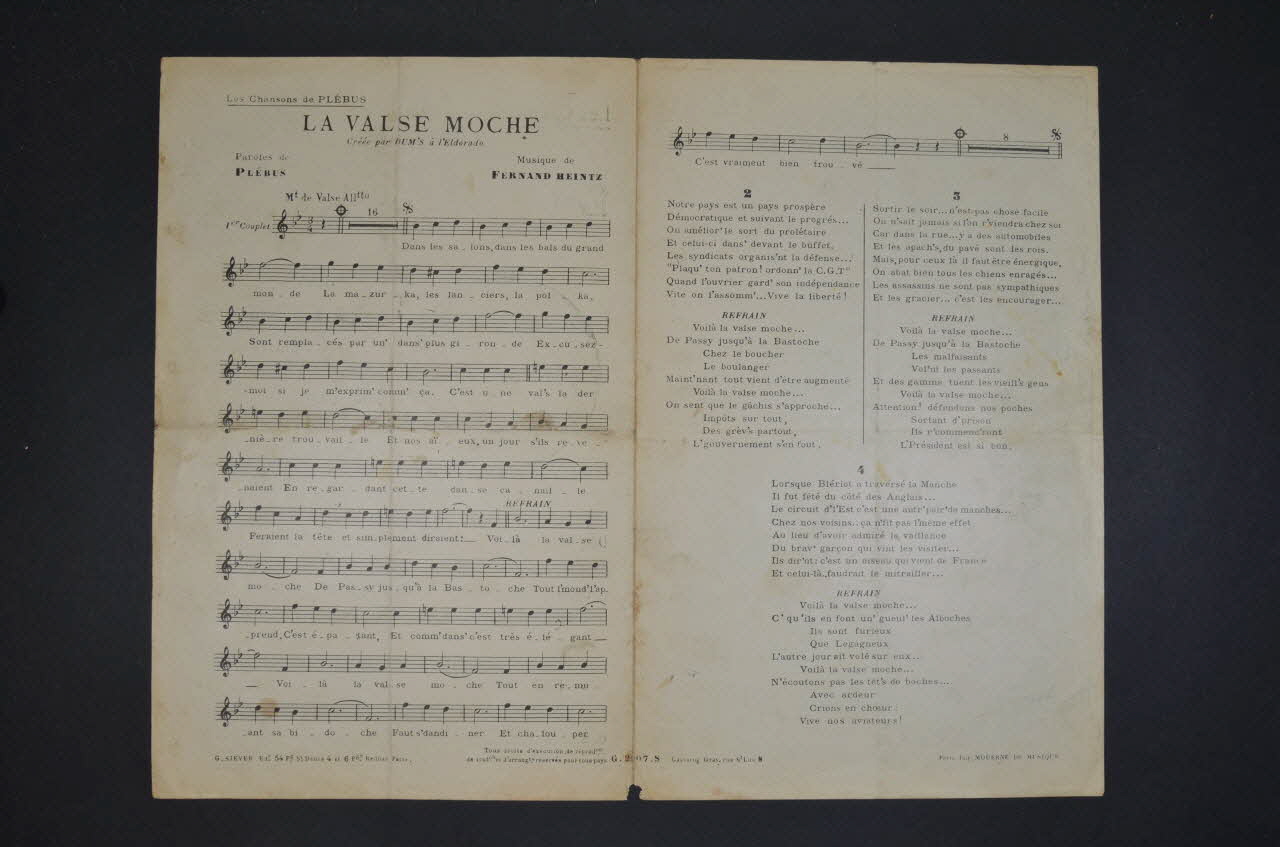 Les Chansons de PLÉBUS
LA VALSE MOCHE
Créée par DUM'S à l'Eldorado
Paroles de
PLÉBUS
Musique de
FERNAND HEINTZ
Mt de Valse Alltto
16
1er Couplet
Dans les sa _ lons, dans les bals du grand
mon _ de La ma _ zur _ ka, les lan _ ciers, la pol _ ka,
Sont rempla _ cés par un' dans' plus gi _ ron _ de Ex _ cu _ sez -
-moi si je m'exprim' comm' ça. C'est u _ ne val's la der
_ niè _ re trou _ vail _ le Et nos aï _ eux, un jour s'ils re _ ve _
_ naient En re _ gar _ dant cet _ te dan _ se ca _ nail _ le
REFRAIN
Feraient la tête et sim _ plement diraient: _ Voi _ là la val _ se
mo _ che De Pas _ sy jus _ qu'à la Bas _ to _ che Tout l'mond' l'ap _
_ prend, C'est é _ pa _ tant, Et comm' dans' c'est très é _ lé _ gant _
_ Voi _ là la val _ se mo _ che Tout en re _ mu _
_ ant sa bi _ do _ che Faut s'dandi _ ner Et cha _ lou _ per
G. SIEVER Edr 54 Fg St Denis 4 et 6 Pge Reilhac Paris.
Tous droits d'exécution, de reprodon
de tradon et d'arrangts réservés pour tous pays
G. 2907. S
8
C'est vraiment bien trou _ vé _
2
Notre pays est un pays prospère
Démocratique et suivant le progrès...
On amélior' le sort du prolétaire
Et celui-ci dans' devant le buffet.
Les syndicats organis'nt la défense...
"Plaqu' ton patron! ordonn' la C.G.T"
Quand l'ouvrier gard' son indépendance
Vite on l'assomm'... Vive la liberté!
REFRAIN
Voilà la valse moche...
De Passy jusqu'à la Bastoche
Chez le boucher
Le boulanger
Maint'nant tout vient d'être augmenté
Voilà la valse moche...
On sent que le gâchis s'approche...
Impôts sur tout,
Des grèv's partout,
L'gouvernement s'en fout.
3
Sortir le soir... n'est pas chose facile
On n'sait jamais si l'on r'viendra chez soi
Car dans la rue... y a des automobiles
Et les apach's, du pavé sont les rois.
Mais, pour ceux là il faut être énergique,
On abat bien tous les chiens enragés...
Les assassins ne sont pas sympathiques
Et les gracier... c'est les encourager...
REFRAIN
Voilà la valse moche...
De Passy jusqu'à la Bastoche
Les malfaisants
Vol'nt les passants
Et des gamins tuent les vieill's gens
Voilà la valse moche...
Attention! défendons nos poches
Sortant d'prison
Ils r'commenc'ront
L'Président est si bon.
4
Lorsque Blériot a traversé la Manche
Il fut fêté du côté des Anglais...
Le circuit d'l'Est c'est une autr' pair' de manches...
Chez nos voisins.. ça n'fit pas l'même effet
Au lieu d'avoir admiré la vaillance
Du brav' garçon qui vint les visiter...
Ils dir'nt: c'est un oiseau qui vient de France
Et celui-là, faudrait le mitrailler...
REFRAIN
Voilà la valse moche...
C' qu'ils en font un' gueul' les Alboches
Ils sont furieux
Que Legagneux
L'autre jour ait volé sur eux...
Voilà la valse moche...
N'écoutons pas les têt's de boches...
Avec ardeur
Crions en chœur:
Vive nos aviateurs!